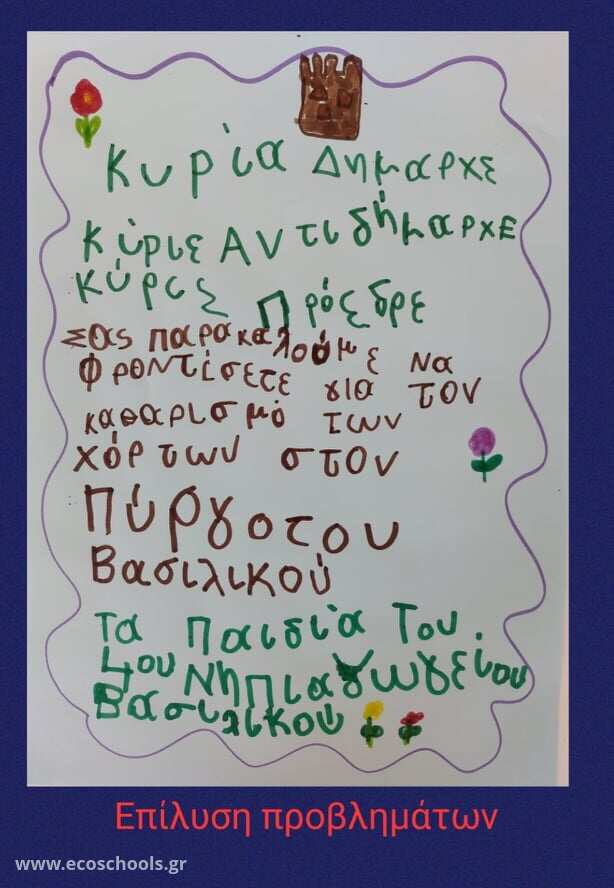 Κυρία Δημαρχε
Κύριε Αντιδήμαρχε
Κύριε Πρόεδρε
Σας παρακαλούμε να
φροντίσετε για τον
καθαρισμό των
χόρτων στον
Πύργο του
Βασιλικού
Τα Παιδιά Του
4ου Νηπιαγωγείου
Βασιλικού
Επίλυση προβλημάτων
www.ecoschools.gr